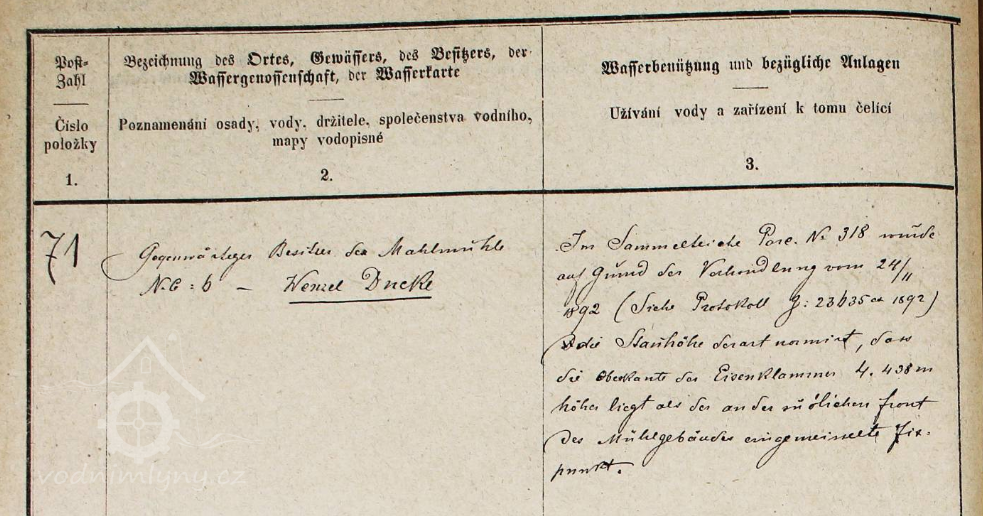 Post-
Zahl
Bezeichnung des Ortes, Gewässers, des Besitzers, der
Wassergenossenschaft, der Wasserkarte
Wasserbenützung und bezügliche Anlagen
Číslo
položky
Poznamenání osady, vody, držitele, společenstva vodního,
mapy vodopisné
Užívání vody a zařízení k tomu čelící
1.
2.
3.
71
Gegenwärtiger Besitzer der Mahlmühle
NC: 6 — Wenzel Ducke
Im Sammelteiche Parc. № 318 wurde
auf Grund der Verhandlung vom 24/11
1892 (Siehe Protokoll Z: 23635 ex 1892)
die Stauhöhe derart normirt, dass
die Oberkante der Eisenklammer 4.438 m
höher liegt als der an der südlichen Front
des Mühlgebäudes eingemeisselte Fix-
punkt.
vodnimlyny.cz